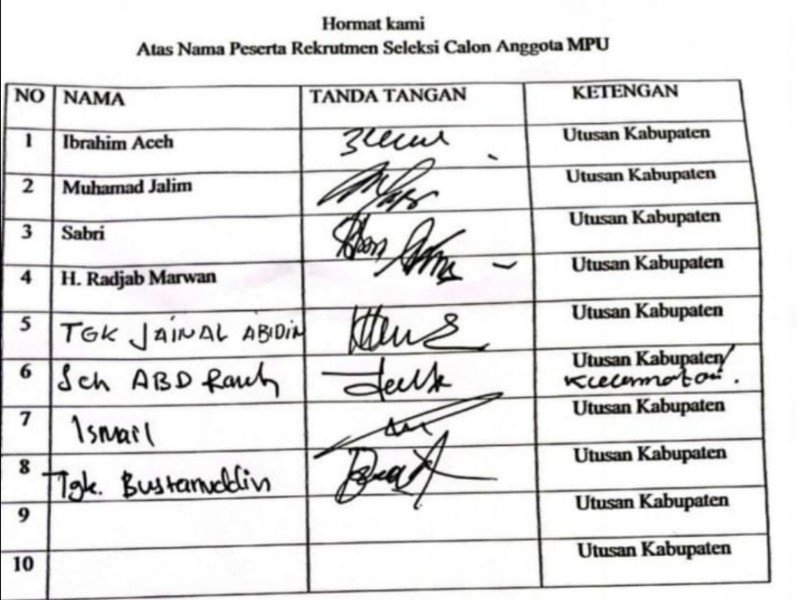 Hormat kami
Atas Nama Peserta Rekrutmen Seleksi Calon Anggota MPU
NO NAMA TANDA TANGAN KETENGAN
1 Ibrahim Aceh Utusan Kabupaten
2 Muhamad Jalim Utusan Kabupaten
3 Sabri Utusan Kabupaten
4 H. Radjab Marwan Utusan Kabupaten
5 TGK JAINAL ABIDIN Utusan Kabupaten
6 Sch ABD Utusan Kabupaten/
7 Ismail Utusan Kabupaten
8 Tgk. Bustanuddin Utusan Kabupaten
9 Utusan Kabupaten
10 Utusan Kabupaten